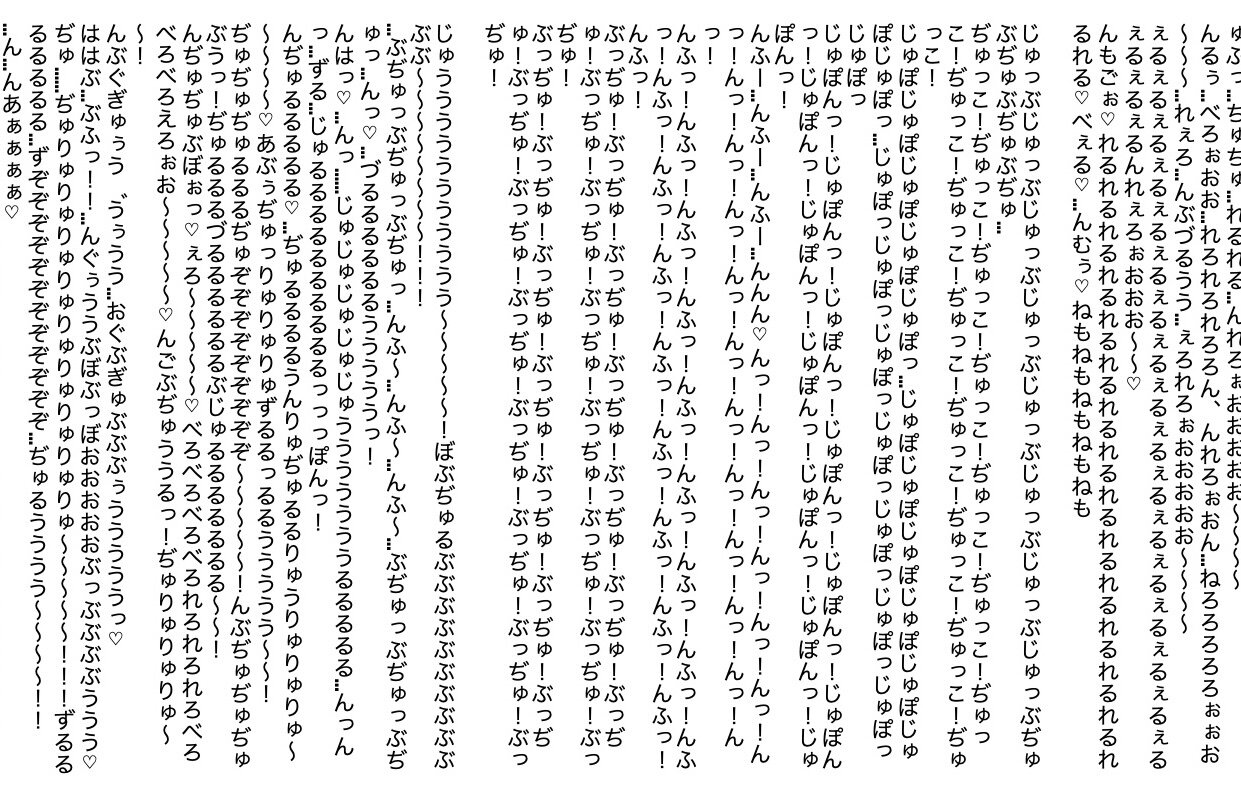 ゅぶっ…ちゅちゅ…れるれる…んれろぉおおおおお～～～～
んるぅ…べろぉおおお…れろれろれろろん、んれろぉおん…ねろろろろろぉぉお
～～～…れぇろ…んぶづるうう…ぇろれろぉおおおおお～～～～
ぇるぇるぇるぇるぇるぇるぇるぇるぇるぇるぇるぇるぇるぇるぇるぇるぇる
ぇるぇるぇるんれぇろぉおおお～～♡
んもごぉ♡れるれるれるれるれるれるれるれるれるれるれるれるれるれるれ
るれる♡べぇる♡…んむぅ♡ねもねもねもねもねも
じゅっぶじゅっぶじゅっぶじゅっぶじゅっぶじゅっぶじゅっぶじゅっぶぢゅ
ぶぢゅぶぢゅぶぢゅ…
ぢゅっこ！ぢゅっこ！ぢゅっこ！ぢゅっこ！ぢゅっこ！ぢゅっこ！ぢゅっ
こ！ぢゅっこ！ぢゅっこ！ぢゅっこ！ぢゅっこ！ぢゅっこ！ぢゅっこ！ぢゅ
っこ！
じゅぽじゅぽじゅぽじゅぽじゅぽっ…じゅぽじゅぽじゅぽじゅぽじゅぽじゅ
ぽじゅぽっ…じゅぽっじゅぽっじゅぽっじゅぽっじゅぽっじゅぽっじゅぽっ
じゅぽっ
じゅぽんっ！じゅぽんっ！じゅぽんっ！じゅぽんっ！じゅぽんっ！じゅぽん
っ！じゅぽんっ！じゅぽんっ！じゅぽんっ！じゅぽんっ！じゅぽんっ！じゅ
ぽんっ！
んふー…んふー…んふー…んんん♡んっ！んっ！んっ！んっ！んっ！んっ！ん
っ！んっ！んっ！んっ！んっ！んっ！んっ！んっ！んっ！ん
っ！
んふっ！んふっ！んふっ！んふっ！んふっ！んふっ！んふっ！んふっ！んふ
っ！んふっ！んふっ！んふっ！んふっ！んふっ！んふっ！んふっ！んふっ！
んふっ！
ぶっぢゅ！ぶっぢゅ！ぶっぢゅ！ぶっぢゅ！ぶっぢゅ！ぶっぢゅ！ぶっぢ
ゅ！ぶっぢゅ！ぶっぢゅ！ぶっぢゅ！ぶっぢゅ！ぶっぢゅ！ぶっぢゅ！ぶっ
ぢゅ！
ぶっぢゅ！ぶっぢゅ！ぶっぢゅ！ぶっぢゅ！ぶっぢゅ！ぶっぢゅ！ぶっぢ
ゅ！ぶっぢゅ！ぶっぢゅ！ぶっぢゅ！ぶっぢゅ！ぶっぢゅ！ぶっぢゅ！ぶっ
ぢゅ！
じゅうううううううううううう～～～～～！ぼぶぢゅるぶぶぶぶぶぶぶぶぶ
ぶぶ～～～～～～～～！！！
…ぶぢゅっぶぢゅっぶぢゅっ…んふ～…んふ～…んふ～…ぶぢゅっぶぢゅっぶぢ
ゅっ…んっ♡…づるるるるるるううううっ！
んはっ♡…んっ……じゅじゅじゅじゅじゅううううううううるるるるる…んっん
っ…ずる…じゅるるるるるるるるるっっっぽんっ！
んぢゅるるるるるる♡…ぢゅるるるるるうんりゅぢゅるるりゅうりゅりゅりゅ～
～～～～♡あぶぅぢゅっりゅりゅりゅずるるっるるううううう～～～！
ぢゅぢゅぢゅるるるぢゅぞぞぞぞぞぞぞぞぞ～～～～～！んぶぢゅぢゅぢゅ
ぶうっ！ぢゅるるるづるるるるるるぶじゅるるるるるるるる～～～！
んぢゅぢゅぶぼぉっ♡ぇろ～～～～～♡べろべろべろべろれろれろれろべろ
べろべろえろぉお～～～～～♡んごぶぢゅううるっ！ぢゅりゅりゅりゅ～
～！
んぶぐぎゅぅう゛うぅうう…おぐぶぎゅぶぶぶぅうううううっ♡
ははぶ…ぶふっ！！…んぐぅううぶぼぶっぼおおおおおぶっぶぶぶぶううう♡
ぢゅ……ぢゅりゅりゅりゅりゅりゅりゅりゅりゅ～～～～～！！！ずるる
るるるるる…ずぞぞぞぞぞぞぞぞぞぞぞぞ…ぢゅるうううう～～～～～！！
…ん…んあぁぁぁぁ♡